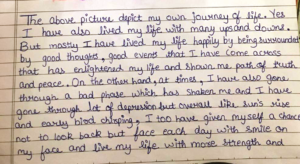 The above picture depict my own journey of life. Yes
I have also lived my life with many ups and downs.
But mostly I have lived my life happily by being surrounded
by good thoughts, good events that I have come across
that has enlightened my life and shown me path of truth
and peace. On the other hand, at times, I have also gone
through a bad phase which has shaken me and I have
gone through lot of depression but overall like sun's rise
and early bird chirping, I too have given myself a chance
not to look back but face each day with smile on
my face and live my life with more strength and